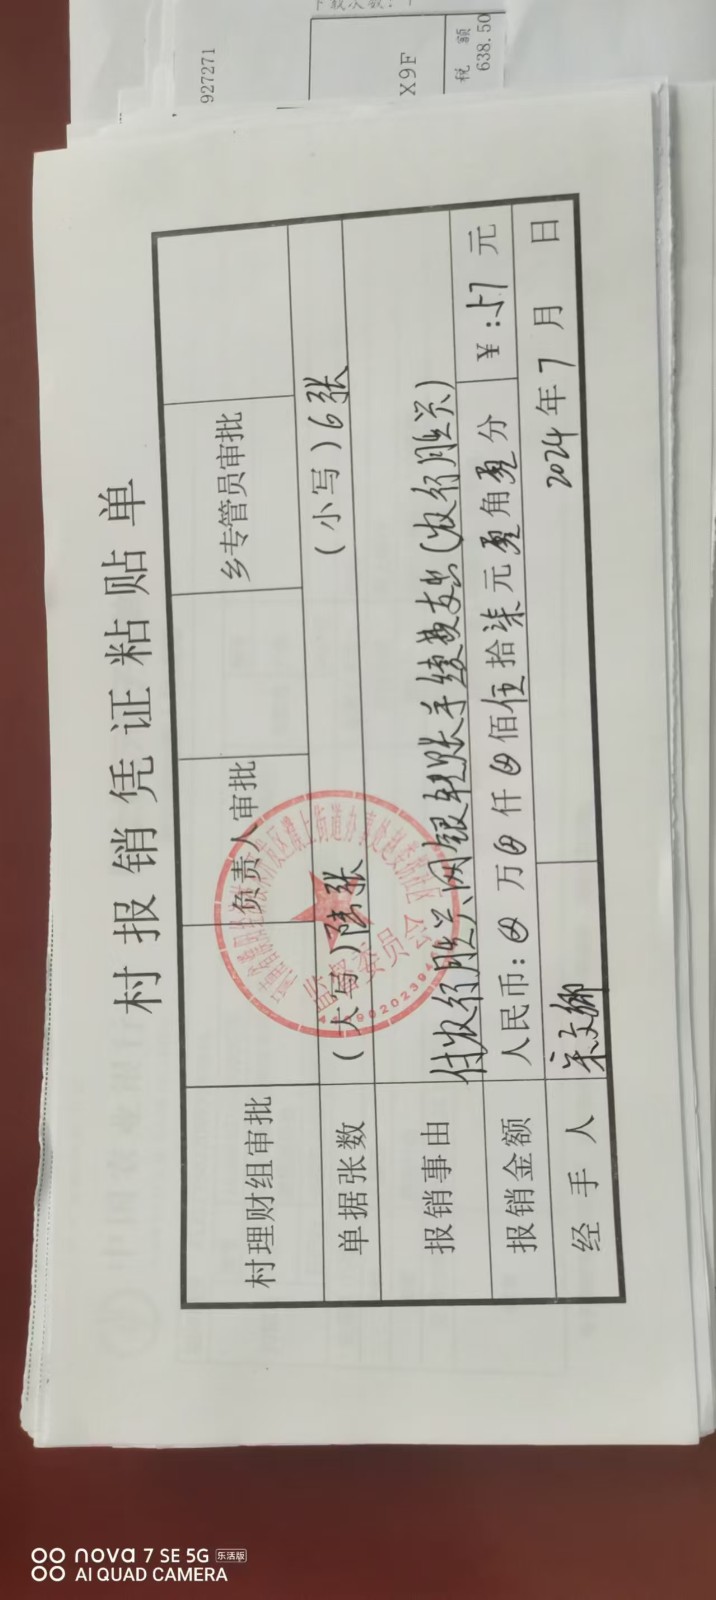 927271
X9F
税 额
638.50
村报销凭证粘贴单
村理财组审批 负责人审批 乡专管员审批
单据张数 (大写)陆张 (小写)6张
报销事由 付农行胜兴网银转账手续费支出(农行胜兴)
报销金额 人民币:⊗万⊗仟⊗佰伍拾柒元零角零分 ¥:57元
经手人 2024年7月 日
监督委员会
nova 7 SE 5G 乐活版
AI QUAD CAMERA